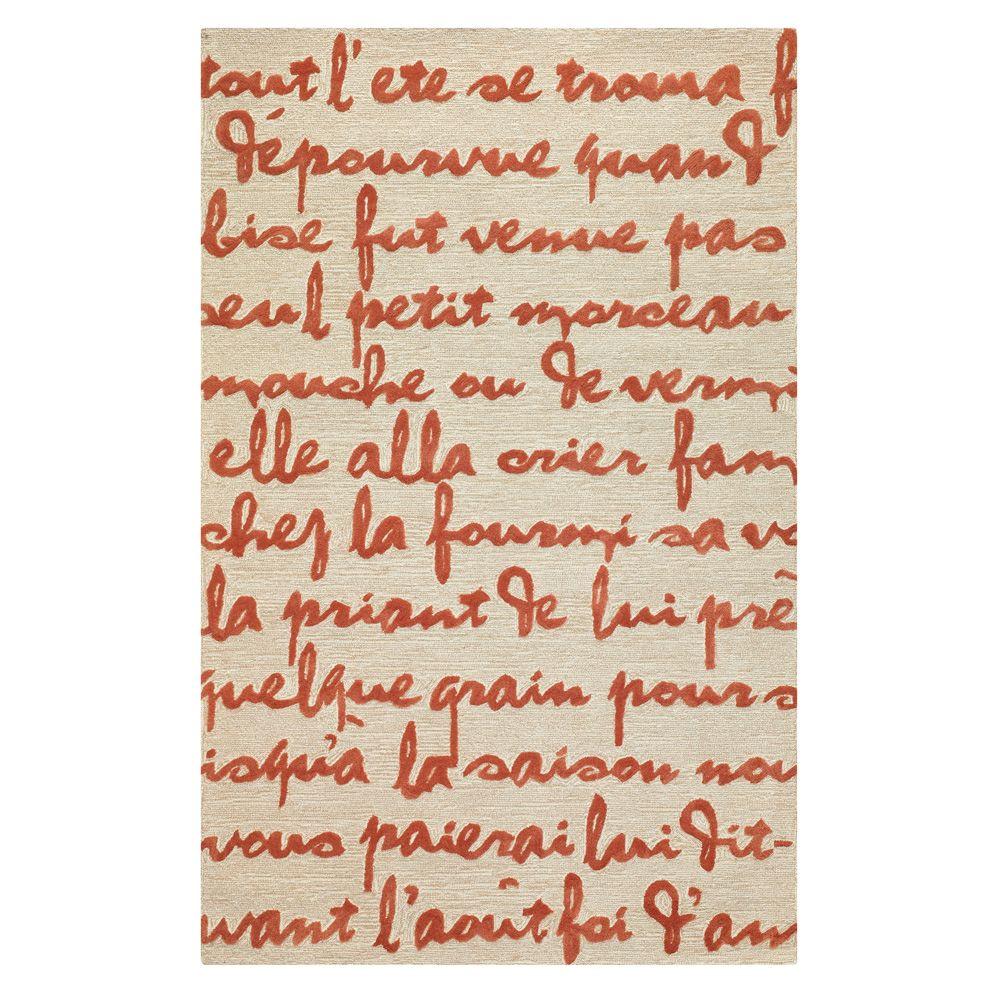 tout l'ete se trouva f
dépourvue quand
bise fut venue pas
seul petit morceau
mouche ou de vermi
elle alla crier fam
chez la fourmi sa vo
la priant de lui prê
quelque grain pour s
usqu'à la saison nou
vous paierai lui dit-
vant l'août foi d'an